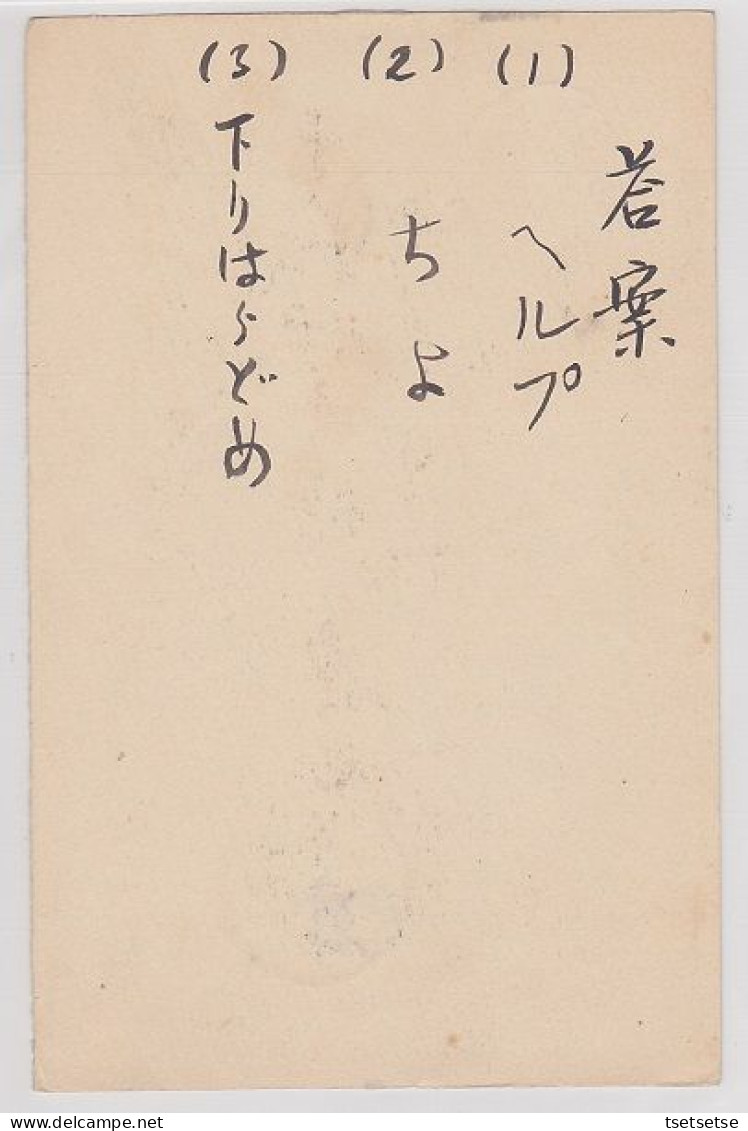 答案
(1) ヘルプ
(2) ちよ
(3) 下りはらどめ
tsetsetse